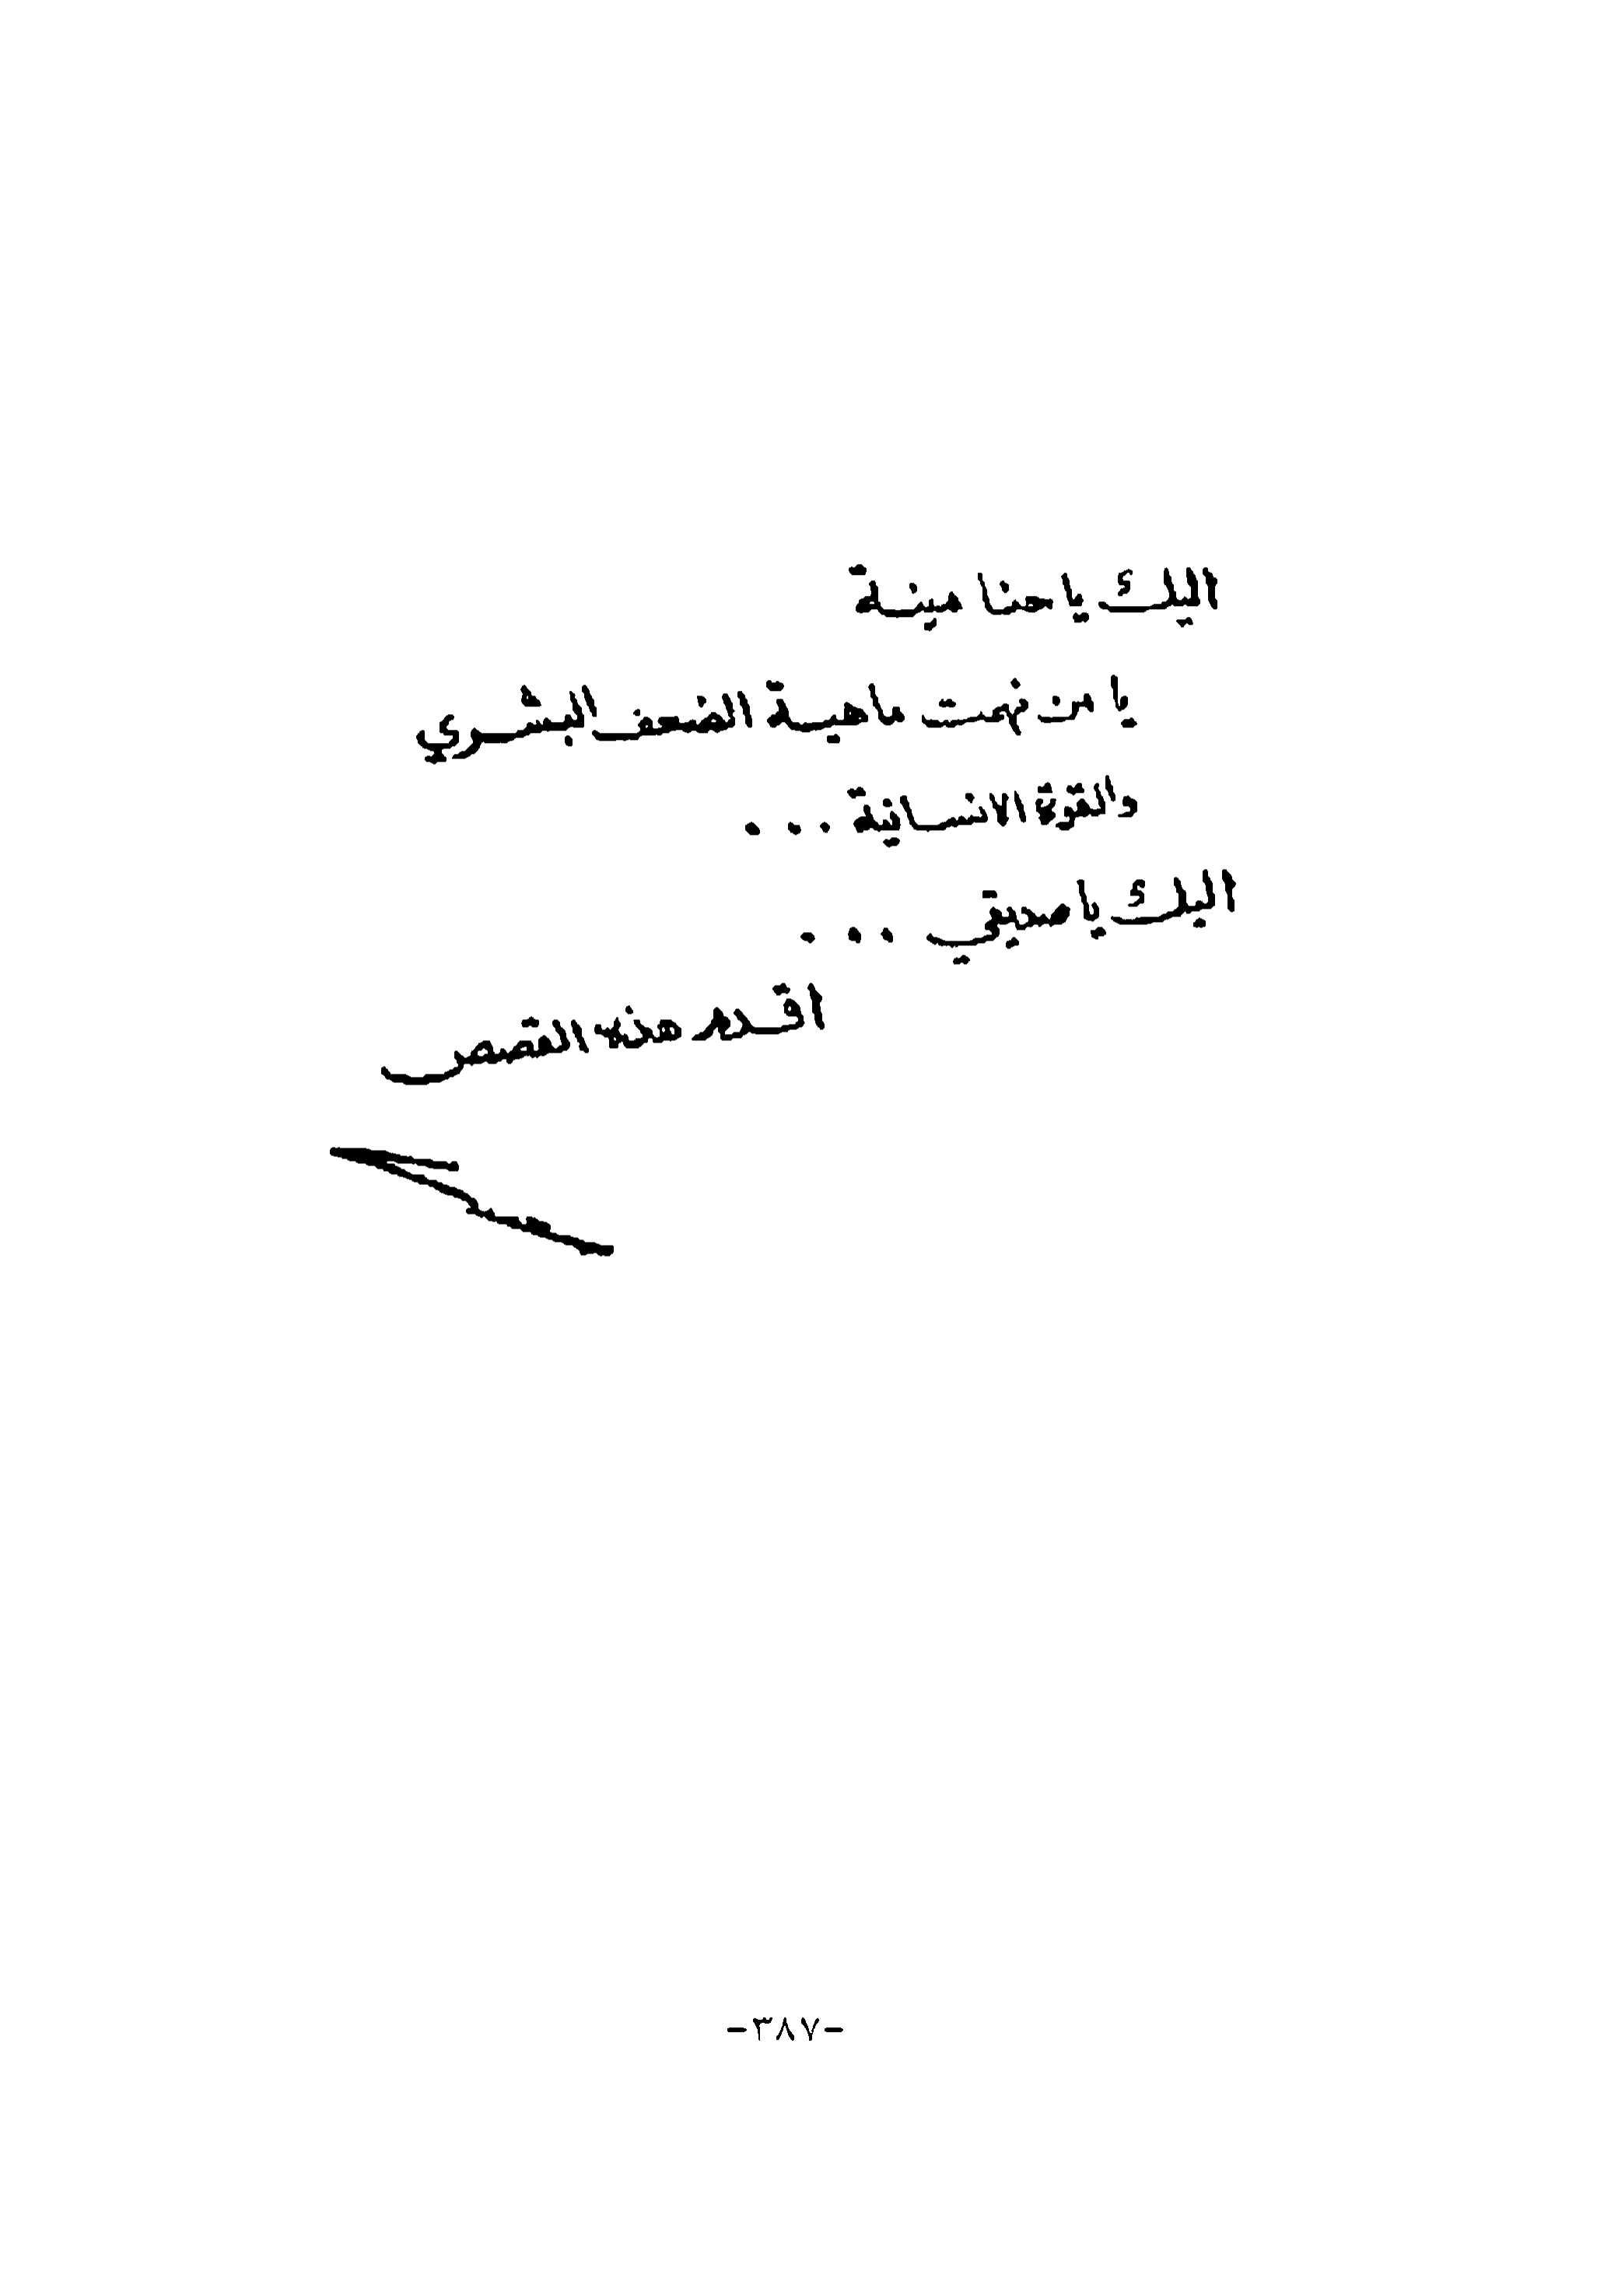 اليك يا حنا مينة
يا من فهمت ماهية الضعف البشري
والقوة الانسانية ...
اليك يا صديقي ...
اقدم هذه القصص
-٣٨٧-